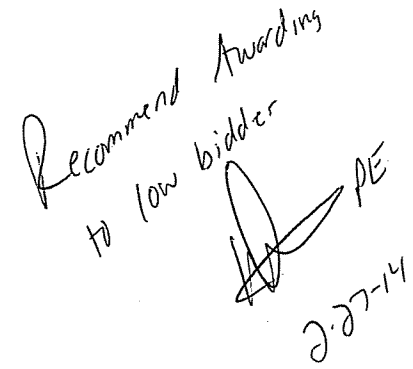 Recommend Awarding
to low bidder
PE
2-27-14